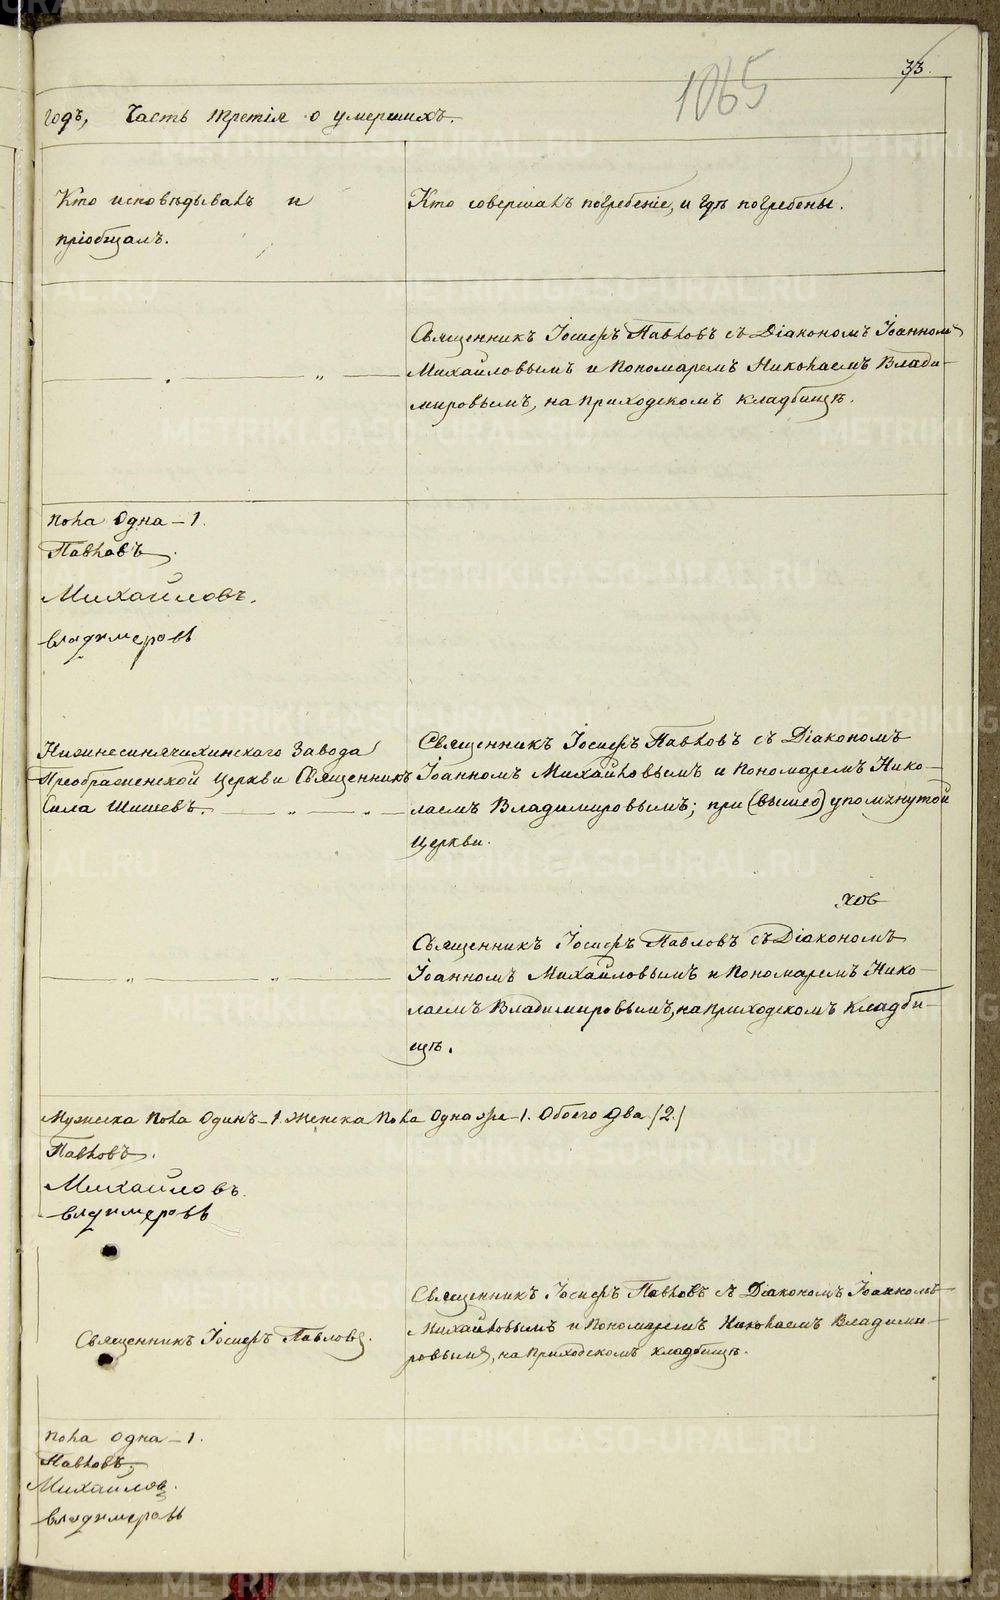 33.
1065
годъ, Часть третія о умершихъ.
Кто исповѣдывалъ и
пріобщалъ.
Кто совершалъ погребеніе, и гдѣ погребены.
Священникъ Іосифъ Павловъ съ Діакономъ Іоанномъ
Михайловымъ и Пономаремъ Николаемъ Влади-
мировымъ, на приходскомъ кладбищѣ.
пола одна – 1.
Павловъ.
Михайловъ.
Владимеровъ
Нижнесинячихинскаго Завода
Преображенской Церкви Священникъ
Сила Шишевъ.
Священникъ Іосифъ Павловъ съ Діакономъ
Іоанномъ Михайловымъ и Пономаремъ Нико-
лаемъ Владимировымъ; при (выше) упомянутой
Церкви.
хов
Священникъ Іосифъ Павловъ съ Діакономъ
Іоанномъ Михайловымъ и Пономаремъ Нико-
лаемъ Владимировымъ, на приходскомъ кладби-
щѣ.
Мужеска пола Одинъ – 1. Женска пола Одна же – 1. Обоего два (2)
Павловъ.
Михайловъ.
Владимеровъ
Священникъ Іосифъ Павловъ.
Священникъ Іосифъ Павловъ съ Діакономъ Іоанномъ
Михайловымъ и Пономаремъ Николаемъ Владими-
ровымъ, на приходскомъ кладбищѣ.
пола одна – 1.
Павловъ.
Михайловъ.
Владимеровъ
METRIKI.GASO-URAL.RU